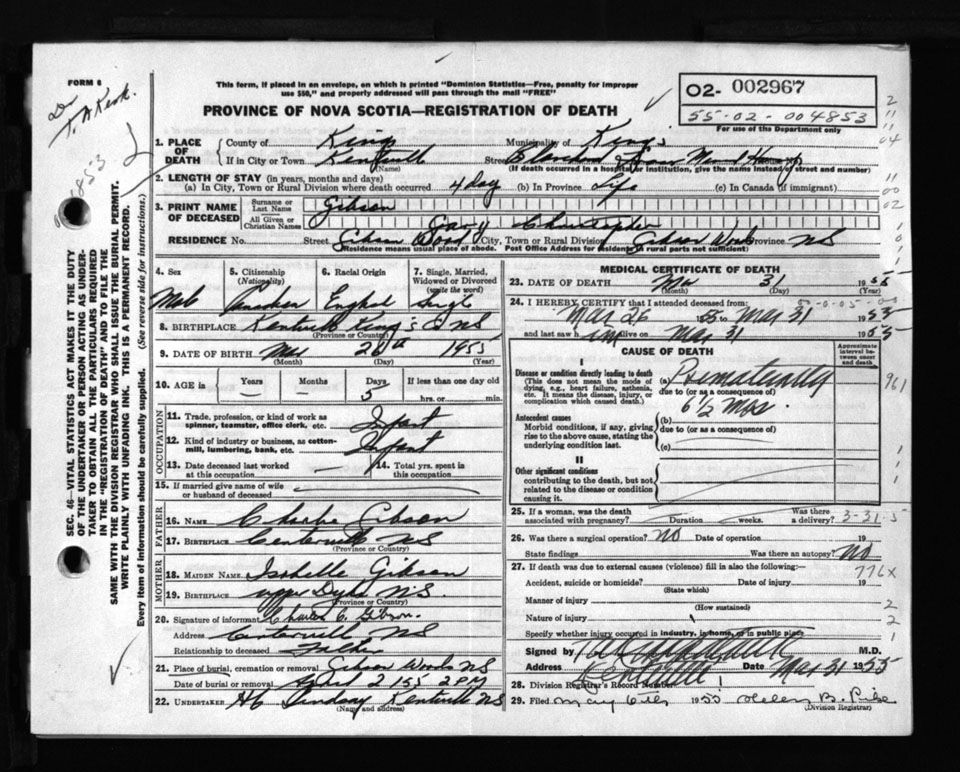 FORM 6
This form, if placed in an envelope, on which is printed "Dominion Statistics—Free, penalty for improper
use $50," and properly addressed will pass through the mail "FREE"
PROVINCE OF NOVA SCOTIA—REGISTRATION OF DEATH
O2- 002967
55-02-004853
For use of the Department only
SEC. 46—VITAL STATISTICS ACT MAKES IT THE DUTY
OF THE UNDERTAKER OR PERSON ACTING AS UNDER-
TAKER TO OBTAIN ALL THE PARTICULARS REQUIRED
IN THE "REGISTRATION OF DEATH" AND TO FILE THE
SAME WITH THE DIVISION REGISTRAR WHO SHALL ISSUE THE BURIAL PERMIT.
WRITE PLAINLY WITH UNFADING INK. THIS IS A PERMANENT RECORD.
Every item of information should be carefully supplied. (See reverse side for instructions.)
1. PLACE OF DEATH County of Kings Municipality of Kings
If in City or Town Kentville Street Blanchard
(Name) (If death occurred in a hospital or institution, give the name instead of street and number)
2. LENGTH OF STAY (in years, months and days)
(a) In City, Town or Rural Division where death occurred 4 day (b) In Province Life (c) In Canada (if immigrant)
3. PRINT NAME OF DECEASED Surname or Last Name Gibson
All Given or Christian Names Gary Christopher
RESIDENCE No. Street Gibson Wood City, Town or Rural Division Gibson Woods Province NS
(Residence means usual place of abode. Post Office Address for residence in rural parts not sufficient)
4. Sex 5. Citizenship (Nationality) 6. Racial Origin 7. Single, Married, Widowed or Divorced (write the word)
Male Canadian English Single
8. BIRTHPLACE Kentville King's Co NS
(Province or Country)
9. DATE OF BIRTH Mar 26th 1955
(Month) (Day) (Year)
10. AGE in Years Months Days If less than one day old
5 hrs. or min.
OCCUPATION
11. Trade, profession, or kind of work as spinner, teamster, office clerk, etc. Infant
12. Kind of industry or business, as cotton-mill, lumbering, bank, etc. Infant
13. Date deceased last worked at this occupation 14. Total yrs. spent in this occupation
15. If married give name of wife or husband of deceased
FATHER
16. NAME Charlie Gibson
17. BIRTHPLACE Centerville NS
(Province or Country)
MOTHER
18. MAIDEN NAME Isabelle Gibson
19. BIRTHPLACE upper Dyke N.S.
(Province or Country)
20. Signature of informant Charles C. Gibson
Address Centerville NS
Relationship to deceased Father
21. Place of burial, cremation or removal Gibson Woods NS
Date of burial or removal April 2 1955 2 PM
22. UNDERTAKER HC Lindsay Kentville NS
(Name and address)
MEDICAL CERTIFICATE OF DEATH
23. DATE OF DEATH Mar 31 1955
(Month) (Day) (Year)
24. I HEREBY CERTIFY that I attended deceased from:
Mar 26 1955 to Mar 31 1955
and last saw him alive on Mar 31 1955
CAUSE OF DEATH
Approximate interval between onset and death
I
Disease or condition directly leading to death (a) Prematurity
(This does not mean the mode of dying, e.g., heart failure, asthenia, etc. It means the disease, injury, or complication which caused death.)
due to (or as a consequence of)
6½ Mos.
Antecedent causes (b)
Morbid conditions, if any, giving rise to the above cause, stating the underlying condition last.
due to (or as a consequence of)
(c)
II
Other significant conditions
contributing to the death, but not related to the disease or condition causing it.
961
25. If a woman, was the death associated with pregnancy? Duration weeks. Was there a delivery? 3-31-5
26. Was there a surgical operation? NO Date of operation 19
State findings Was there an autopsy? NO
27. If death was due to external causes (violence) fill in also the following:—
776X
Accident, suicide or homicide? Date of injury 19
(State which)
Manner of injury
(How sustained)
Nature of injury
Specify whether injury occurred in industry, in home, or in public place
Signed by M.D.
Address Kentville Date Mar 31 1955
28. Division Registrar's Record Number
29. Filed 1955 Helen B.
(Division Registrar)